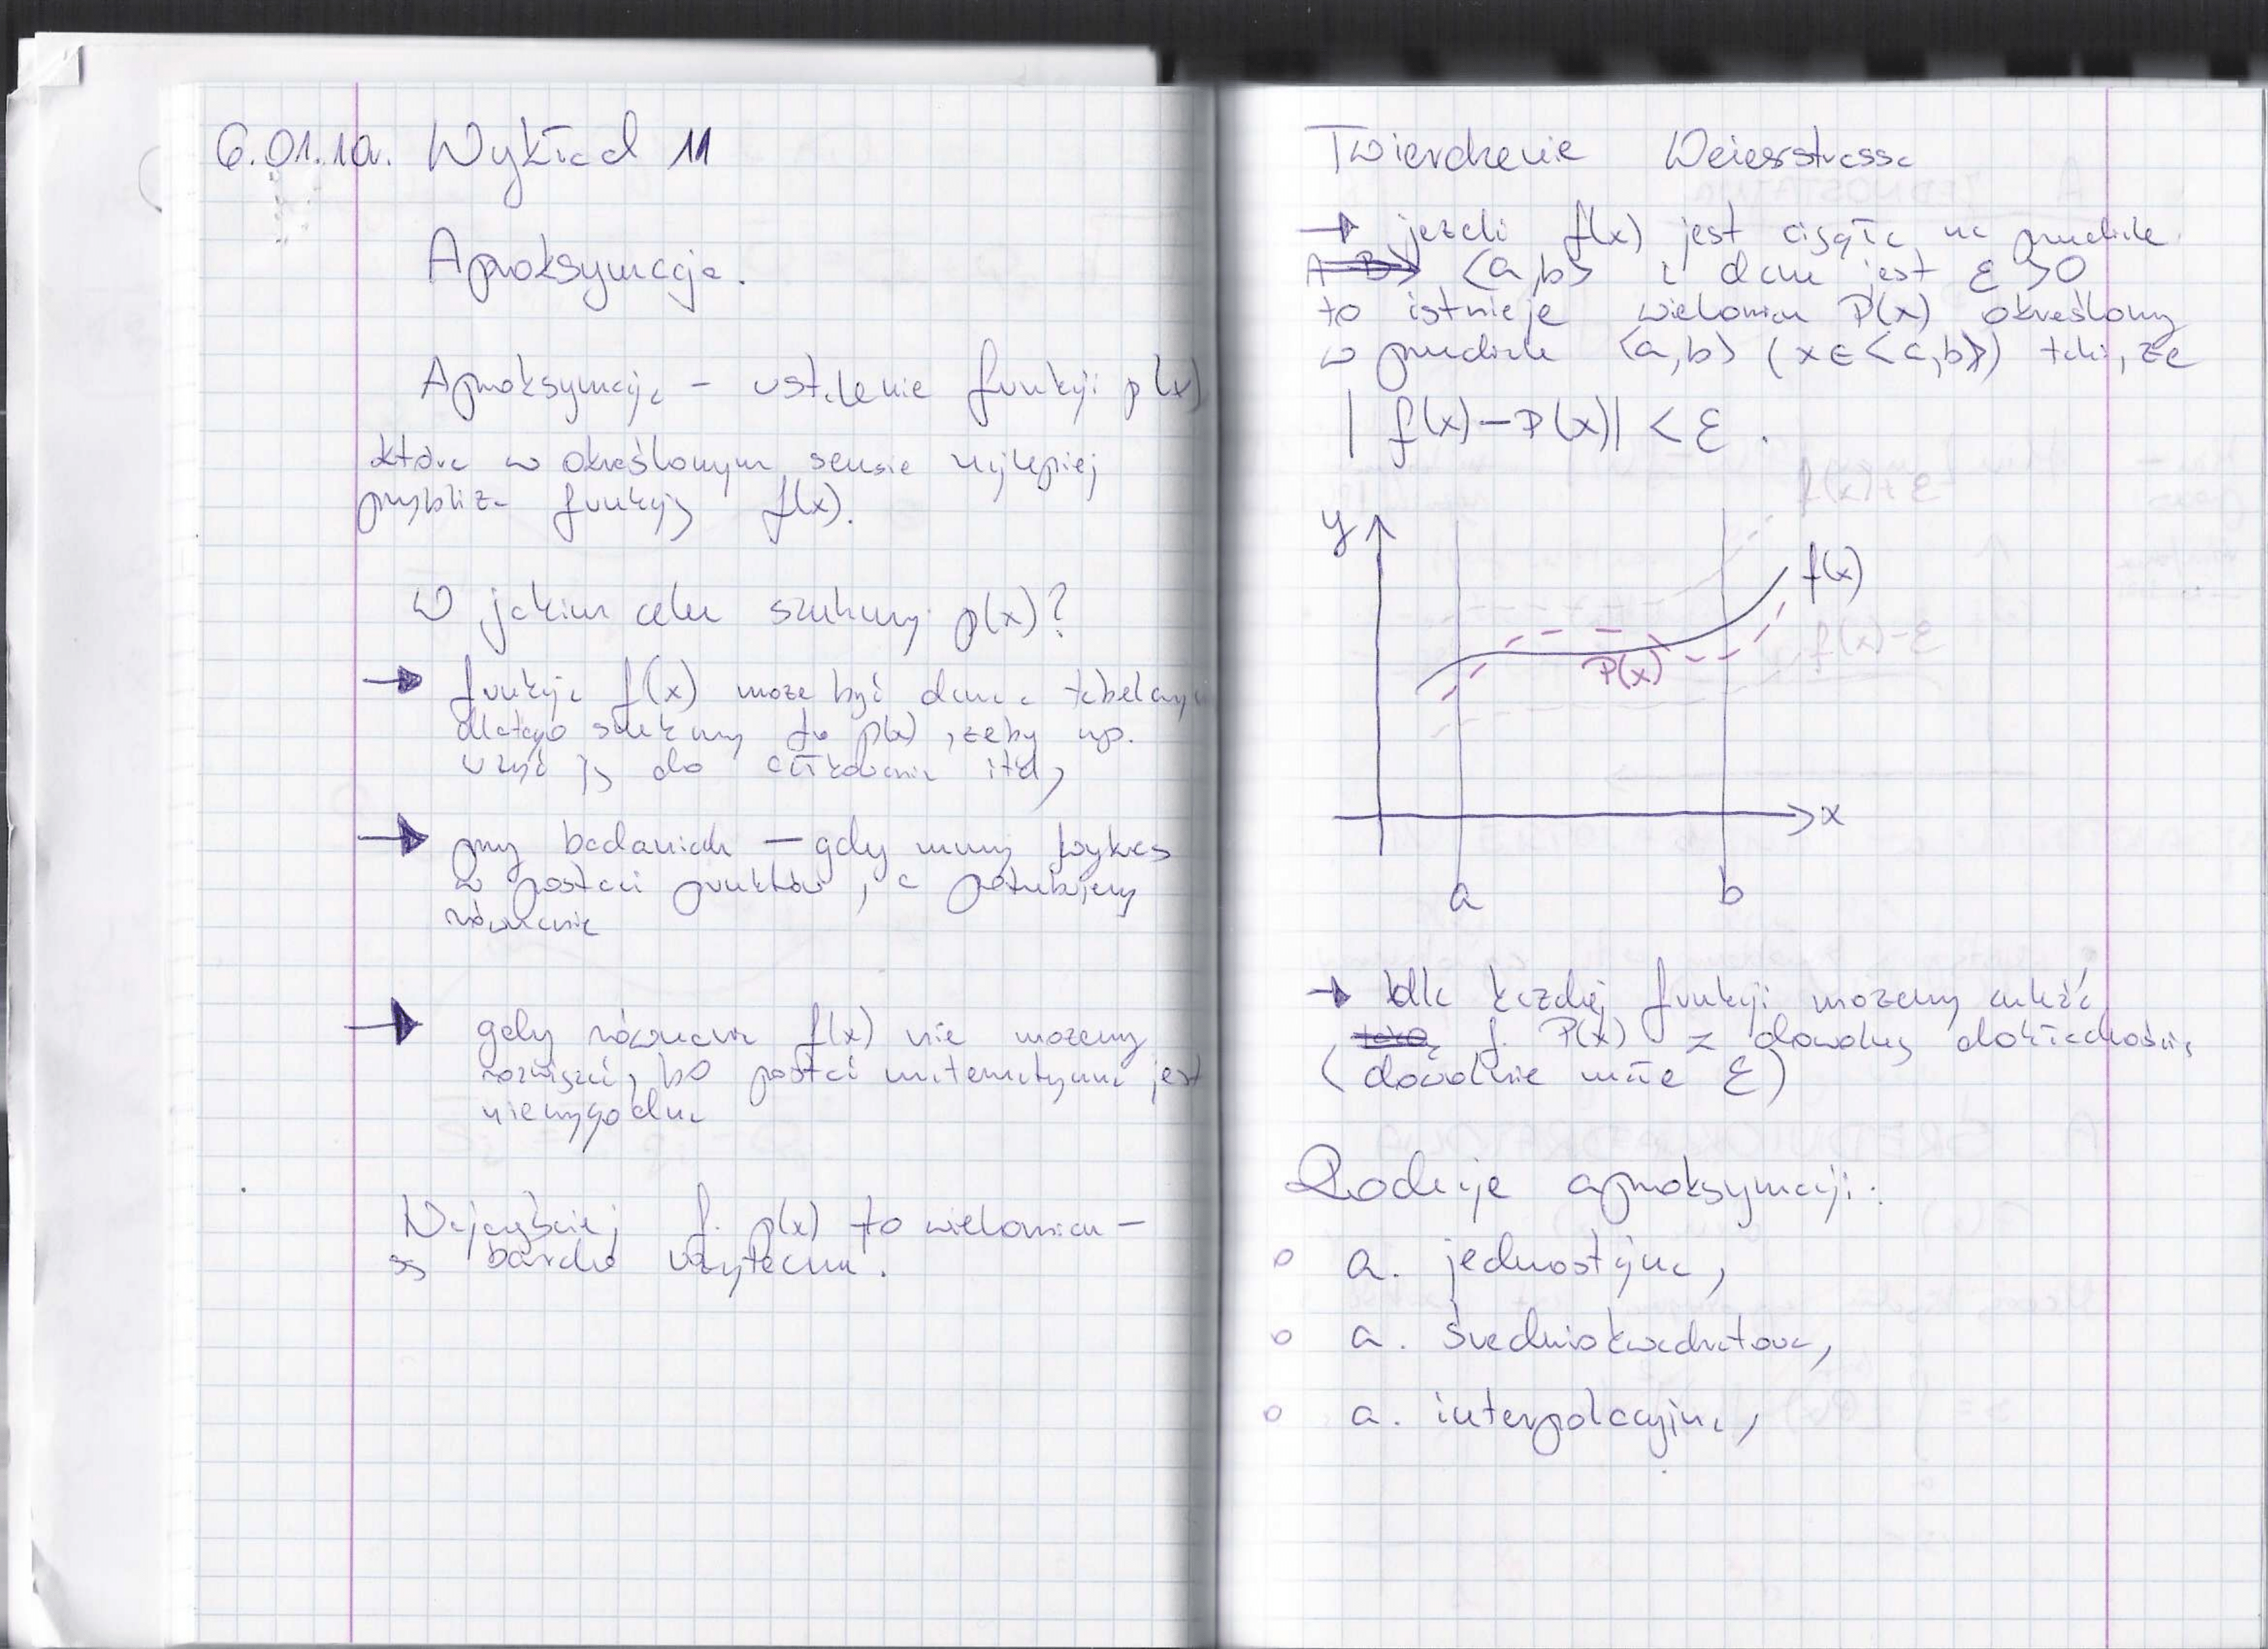 6.01.10r. Wykład 11
Aproksymacja.
Aproksymacja – ustalenie funkcji p(x)
która w określonym sensie najlepiej
przybliża funkcję f(x).
W jakim celu szukamy p(x)?
→ funkcja f(x) może być dana tabelary
dlatego szukamy p(x), żeby np.
użyć ją do całkowania itd,
→ przy badaniach – gdy mamy wykres
w postaci punktów, a potrzebujemy
równanie
→ gdy równania f(x) nie możemy
rozwiązać, bo postać matematyczna jest
niewygodna
Najczęściej f. p(x) to wielomian –
są bardzo użyteczne.
Twierdzenie Weierstrassa
→ jeżeli f(x) jest ciągła na przedziale
<a,b> i dane jest ε >0
to istnieje wielomian P(x) określony
w przedziale <a,b> (x∈<a,b>) taki, że
| f(x)–P(x)| < ε .
f(x)+ε
y
f(x)
f(x)-ε
P(x)
x
a b
→ dla każdej funkcji możemy znaleźć
f. P(x) z dowolną dokładnością
(dowolnie małe ε)
Rodzaje aproksymacji:
o a. jednostajna,
o a. średniokwadratowa,
o a. interpolacyjna,